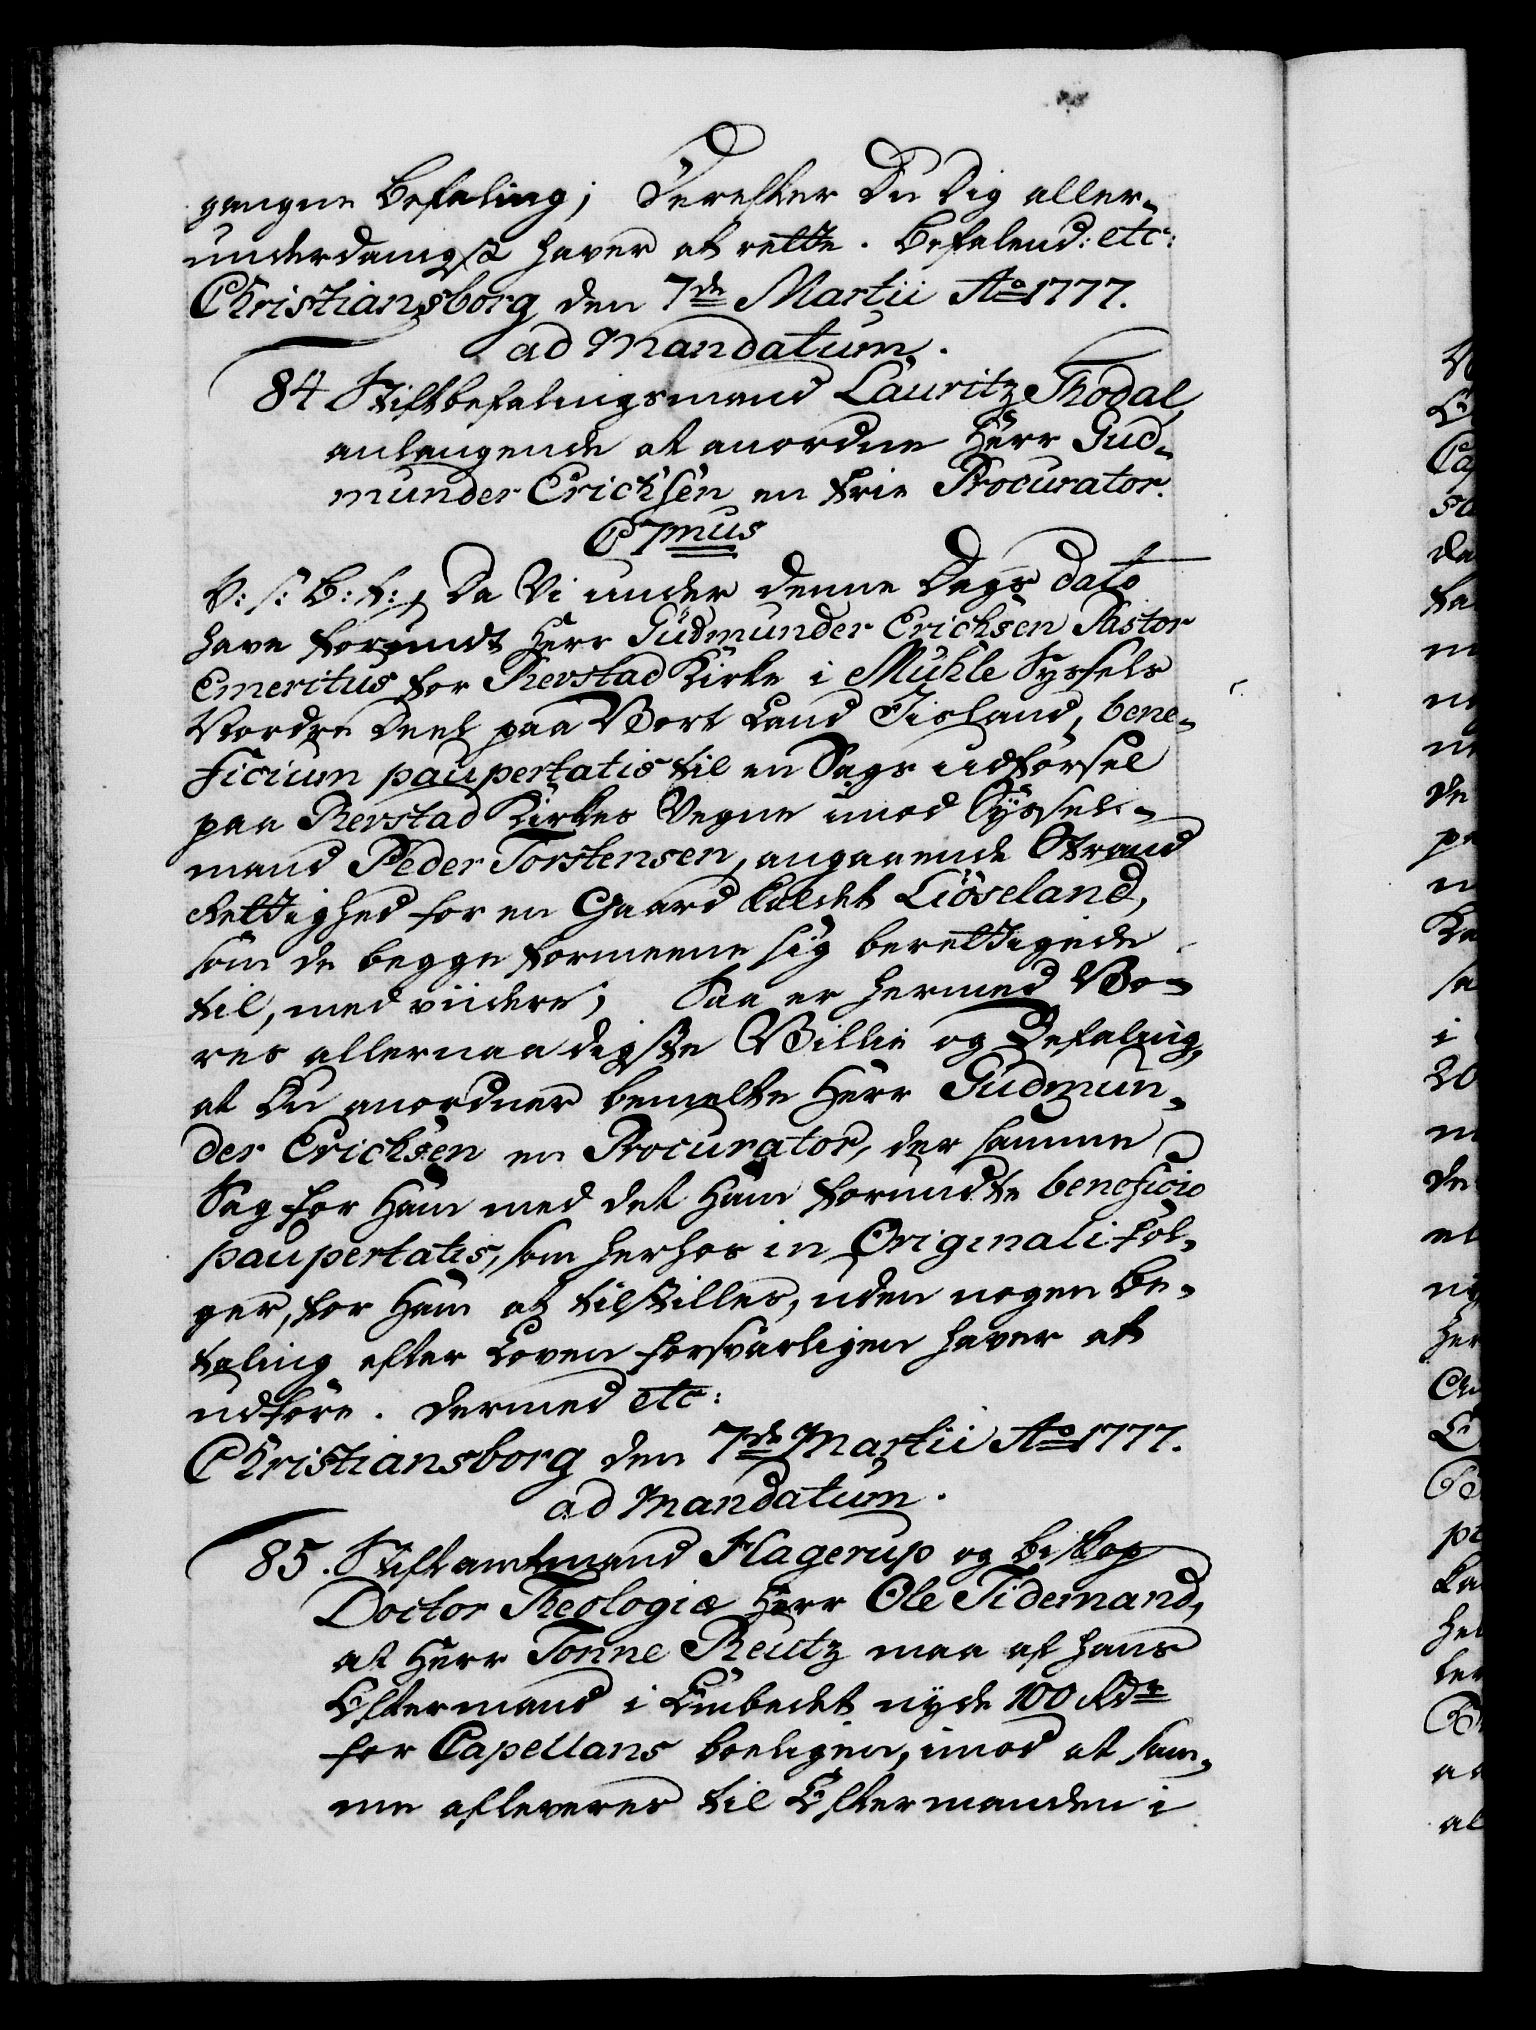 gangne Befaling; Derefter Du Dig aller-
underdanigst haver at rette. Befalend: etc:
Christiansborg den 7de Martii Ao 1777.
ad Mandatum.
84 Stiftbefalingsmand Lauritz Thodal,
anlangende at anordne Herr Gud-
munder Erichsen en frie Procurator.
C 7mus
V: S: B: t:, Da Vi under denne Dags dato
have forundt Herr Gudmunder Erichsen Pastor
Emeritus for Refstad Kirke i Muhle Syssels
Nordre Deel paa Vort Land Iisland, bene-
ficium paupertatis til en Sags udførsel
paa Refstad Kirkes Vegne imod Syssel-
mand Peder Torstensen, angaaende Strand
Rettighed for en Gaard kaldet Liöseland,
som de begge formeene sig berettigede
til, med viidere; Saa er hermed Vo-
res allernaadigste Villie og Befaling,
at Du anordner bemelte Herr Gudmun-
der Erichsen en Procurator, der samme
Sag for Ham med det Ham forundte beneficio
paupertatis, som herhos in Originali føl-
ger, for Ham at tilstilles, uden nogen Be-
taling efter Loven forsvarligen haver at
udføre. Dermed etc:
Christiansborg den 7de Martii Ao 1777.
ad Mandatum.
85. Stiftamtmand Hagerup og Biskop
Doctor Theologiæ Herr Ole Tidemand,
at Herr Tonne Reutz maa af hans
Eftermand i Embedet nyde 100 Rdr
for Capellans boeligen, imod at sam-
me afleveres til Eftermanden i